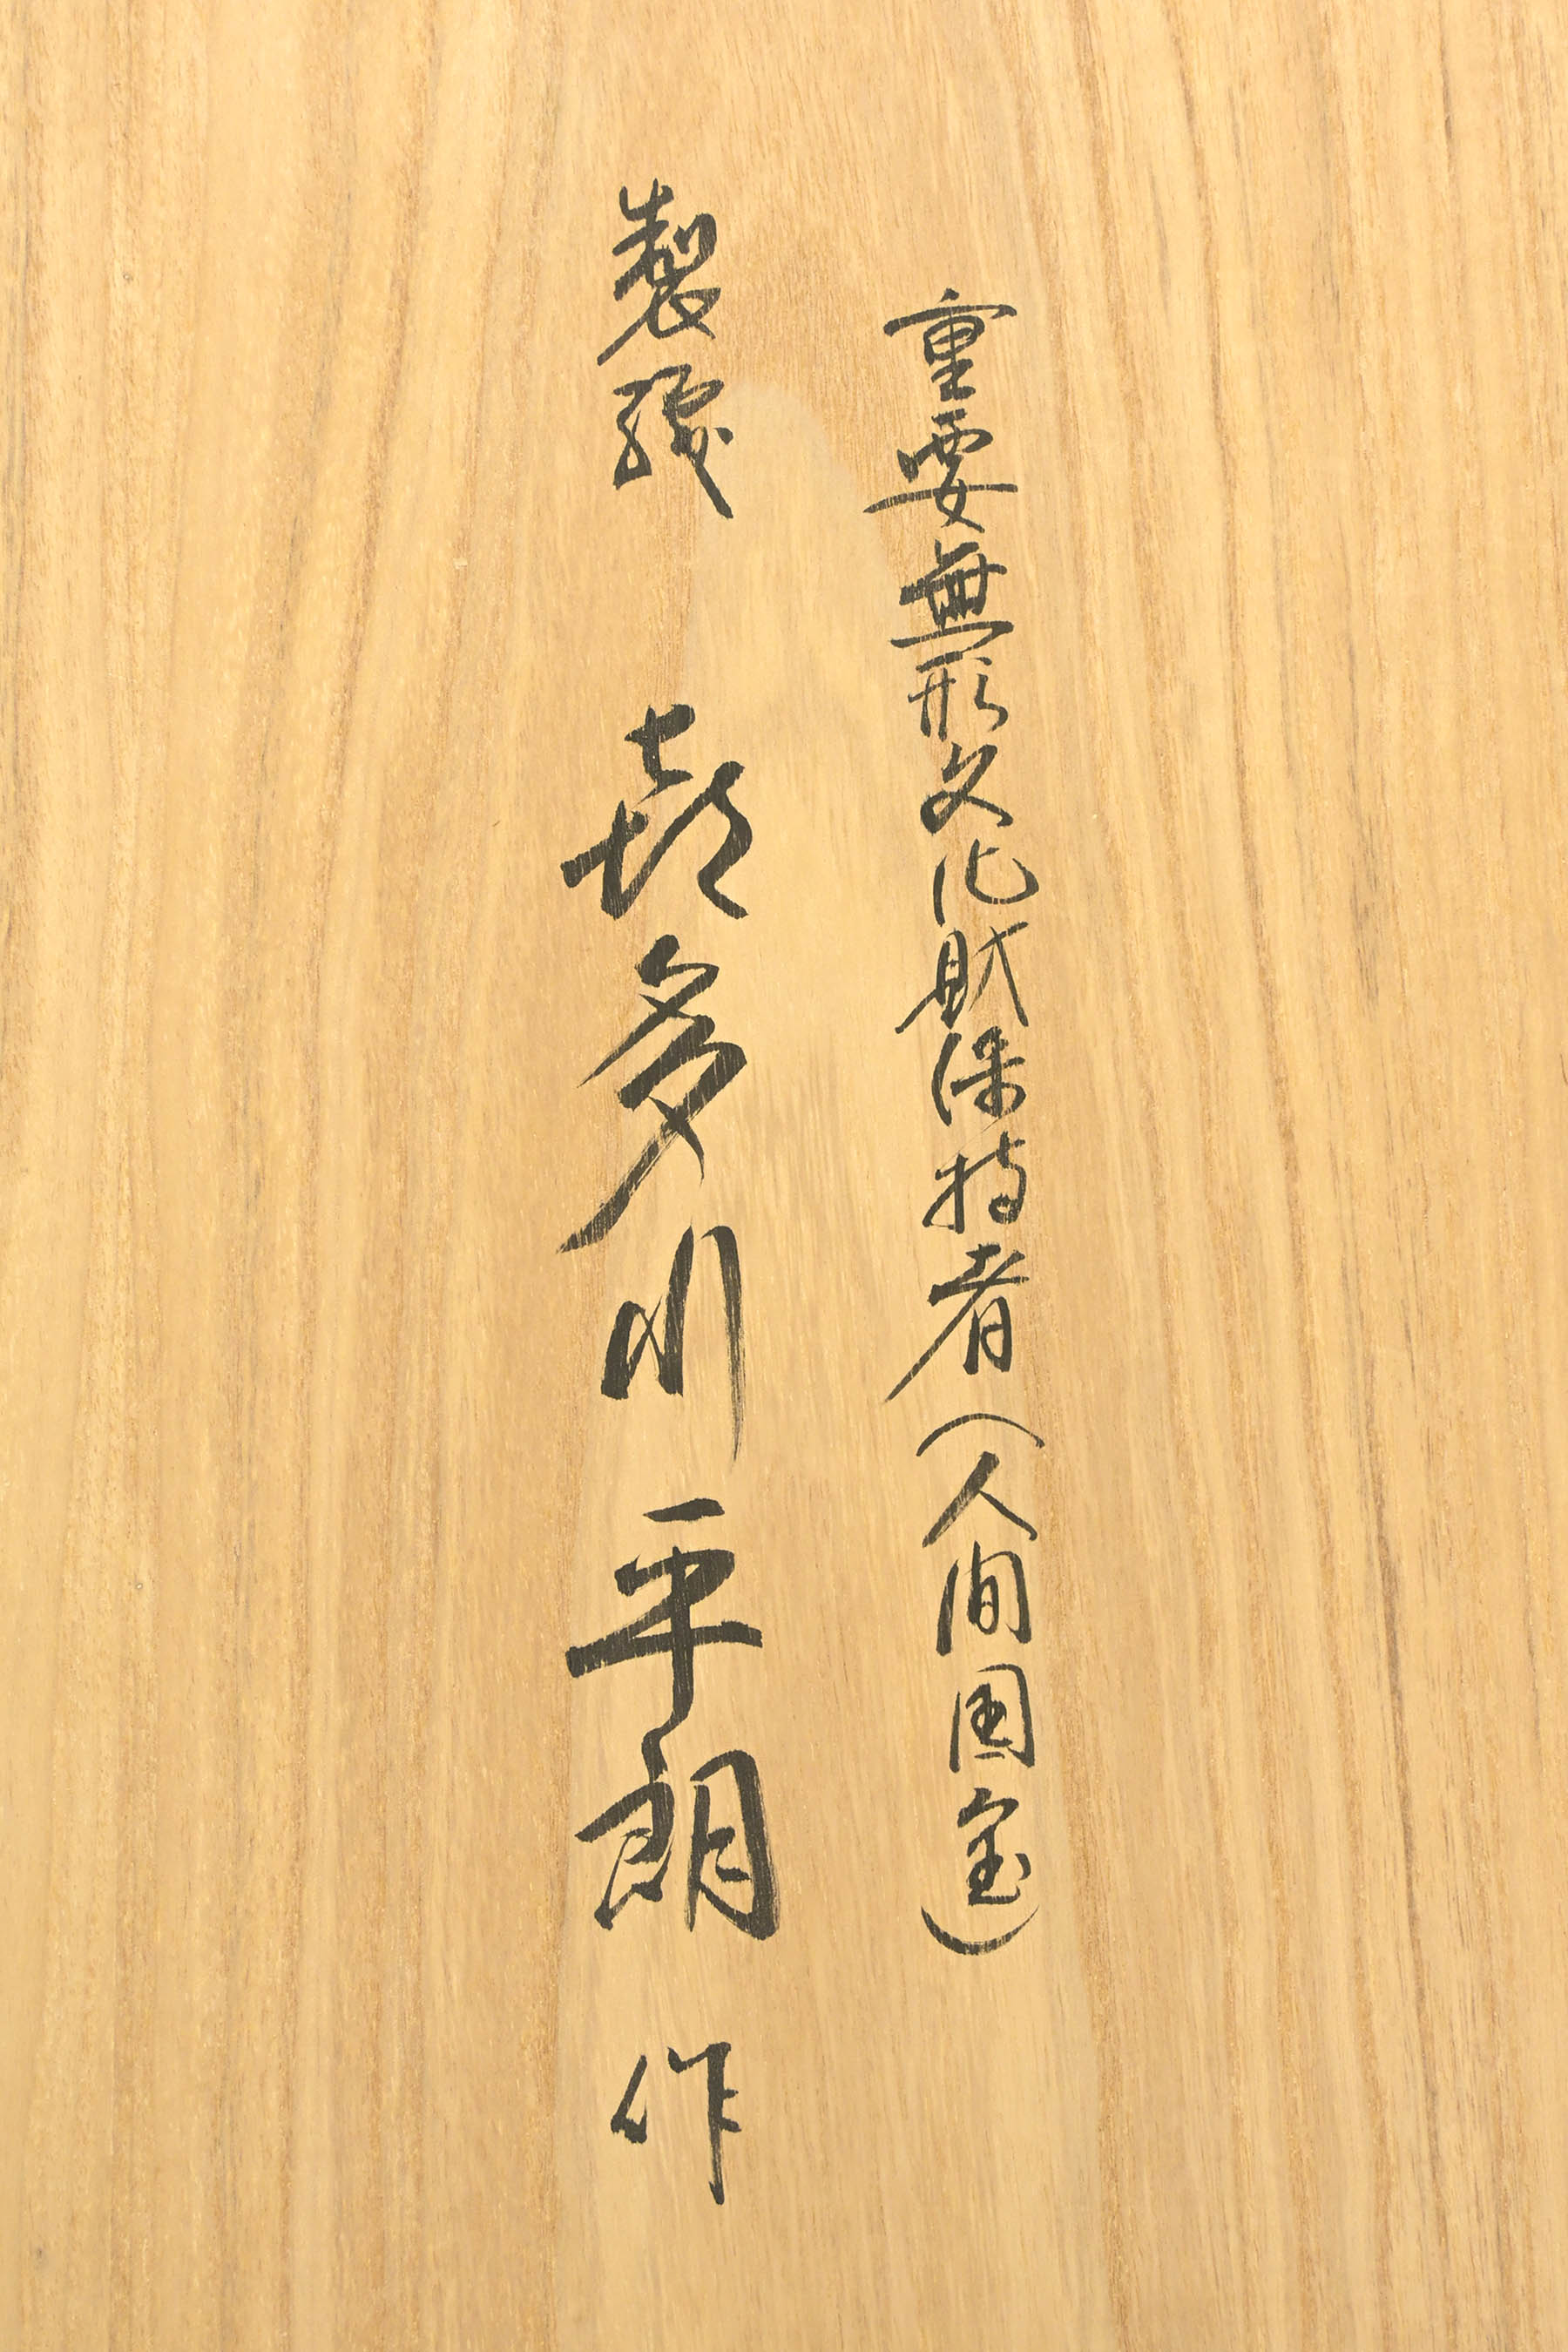 重要無形文化財保持者(人間国宝)
製織 喜多川平朗 作